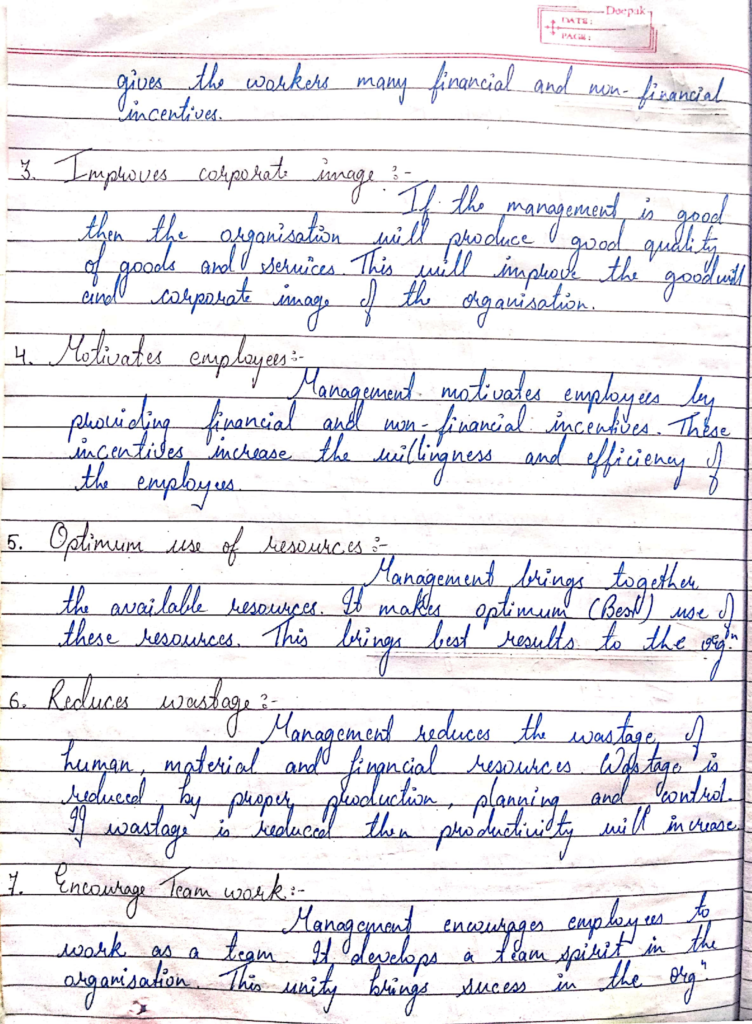 Deepak
DATE:
PAGE:
gives the workers many financial and non-financial
incentives.
3. Improves corporate image :-
If the management is good
then the organisation will produce good quality
of goods and services. This will improve the goodwill
and corporate image of the organisation.
4. Motivates employees:-
Management motivates employees by
providing financial and non-financial incentives. These
incentives increase the willingness and efficiency of
the employees.
5. Optimum use of resources :-
Management brings together
the available resources. It makes optimum (Best) use of
these resources. This brings best results to the orgⁿ.
6. Reduces wastage :-
Management reduces the wastage of
human, material and financial resources. Wastage is
reduced by proper production, planning and control.
If wastage is reduced then productivity will increase.
7. Encourage Team work:-
Management encourages employees to
work as a team. It develops a team spirit in the
organisation. This unity brings sucess in the orgⁿ